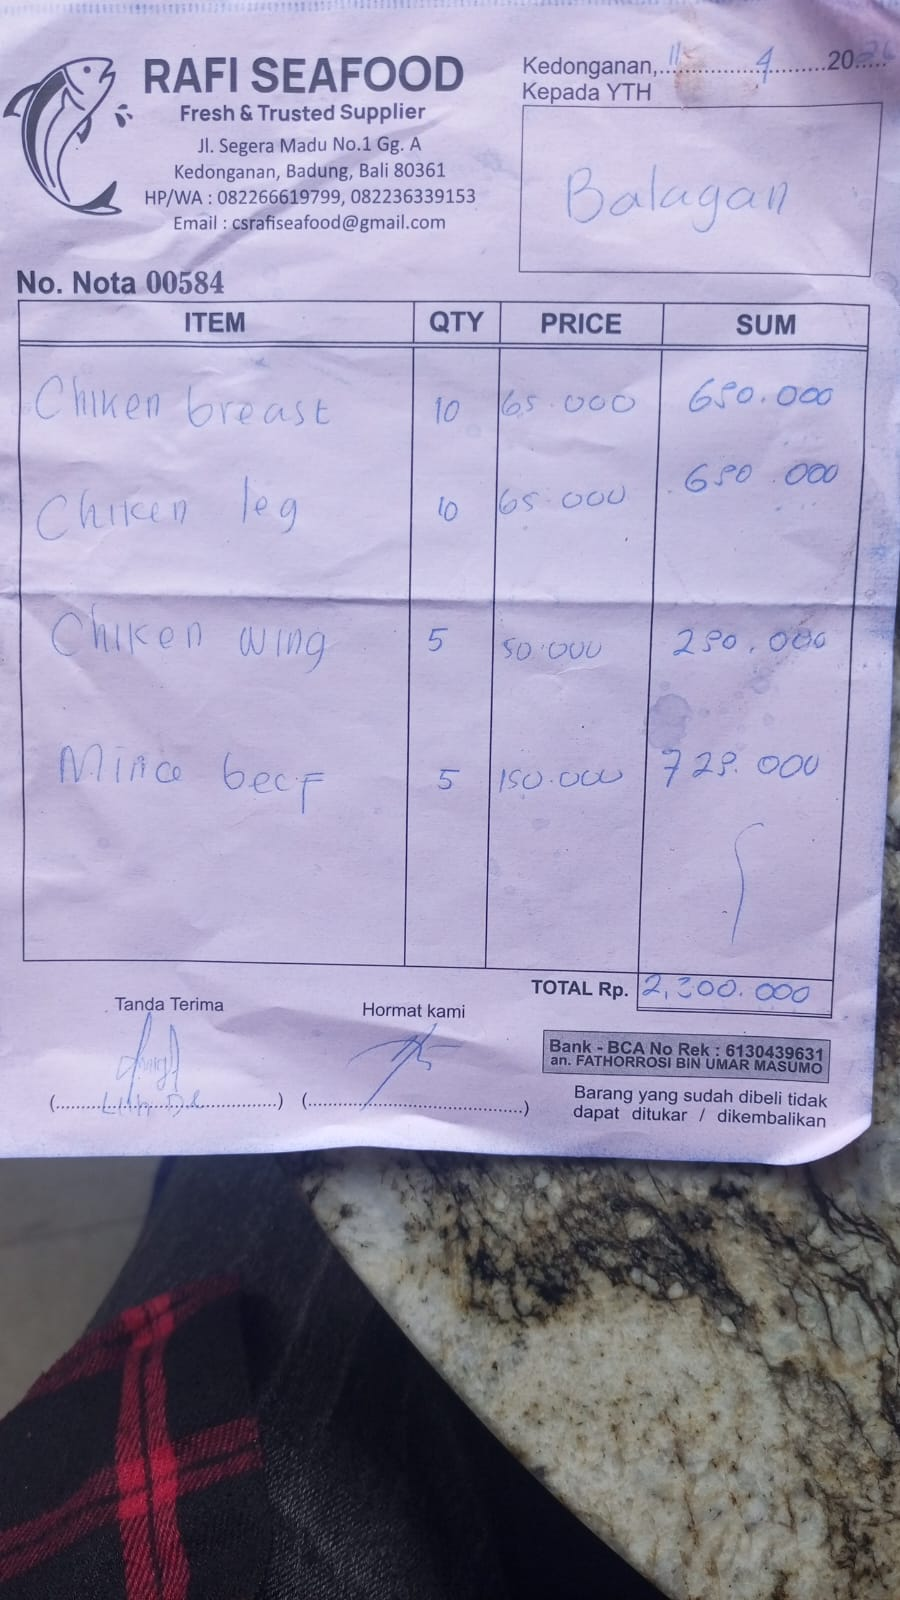 RAFI SEAFOOD
Fresh & Trusted Supplier
Jl. Segera Madu No.1 Gg. A
Kedonganan, Badung, Bali 80361
HP/WA : 082266619799, 082236339153
Email : csrafiseafood@gmail.com
Kedonganan, 11 4 2026
Kepada YTH
Balagan
No. Nota 00584
ITEM QTY PRICE SUM
Chiken breast 10 65.000 650.000
Chiken leg 10 65.000 650.000
Chiken wing 5 50.000 250.000
Mince beef 5 150.000 725.000
TOTAL Rp. 2,300.000
Tanda Terima
Hormat kami
Bank - BCA No Rek : 6130439631
an. FATHORROSI BIN UMAR MASUMO
Barang yang sudah dibeli tidak
dapat ditukar / dikembalikan